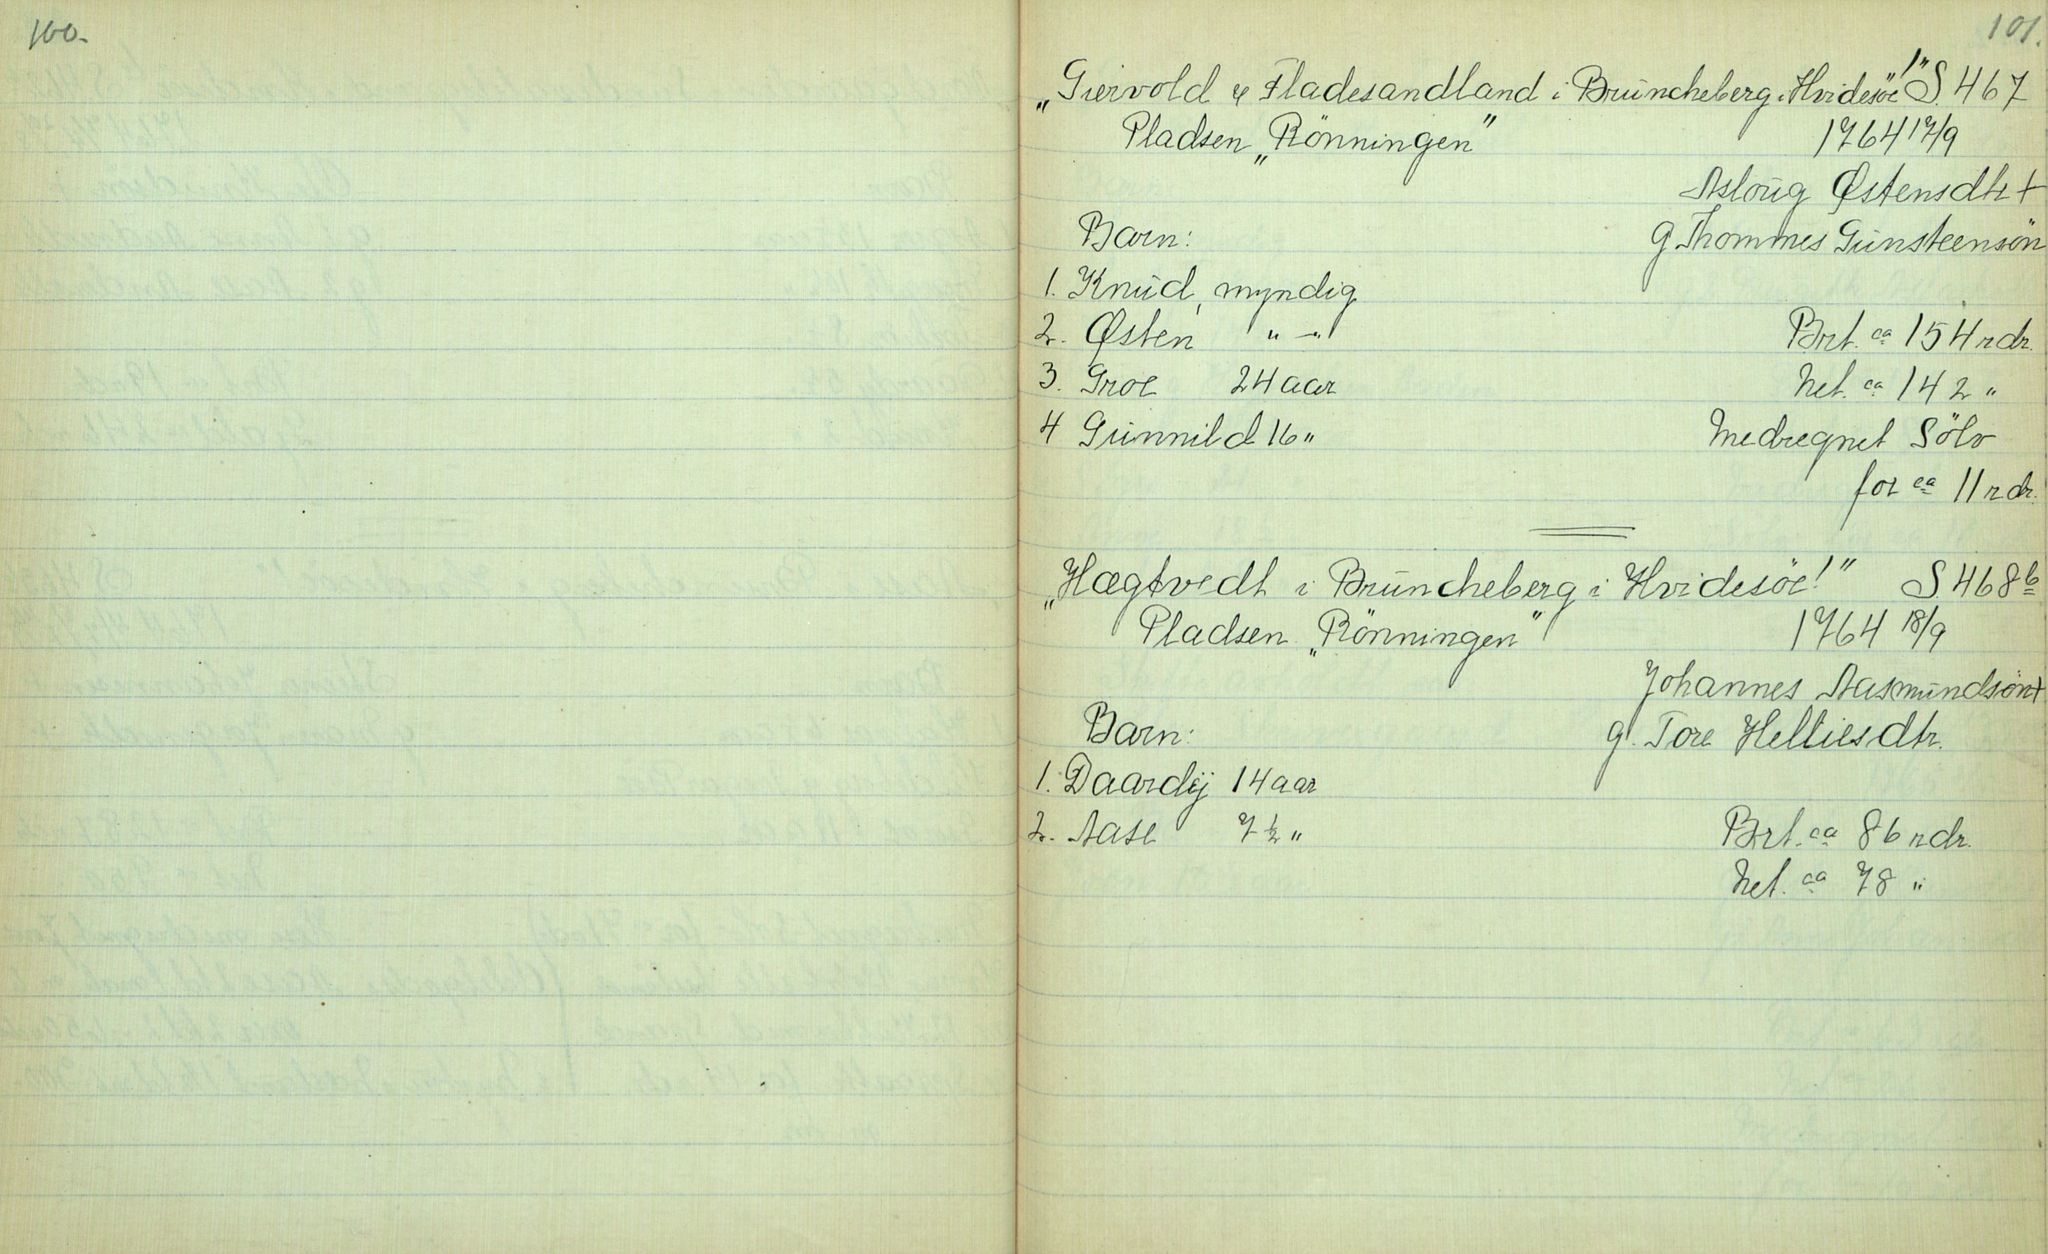 100.
101.
„Giervold & Fladesandland i Brüncheberg i Hvidesöe!" S. 467
Pladsen „Rönningen" 1764 17/9
Asloüg Østensdtr +
Barn: g. Thommes Günsteensön
1. Knüd, myndig
2. Østen „ —" Brt. ca 154 rdr.
3. Groe 24 aar Net. ca 142 „
4 Günnild 16 „ Medregnet Sölv
for ca 11 rdr.
„Hægtvedt i Brüncheberg i Hvidesöe!" S. 468 b
Pladsen „Rönningen" 1764 18/9
Johannes Aasmündsön +
Barn: g. Tore Helliesdtr.
1. Daardij 14 aar
2. Aase 7 ½ „ Brt. ca 86 rdr.
Net. ca 78 „